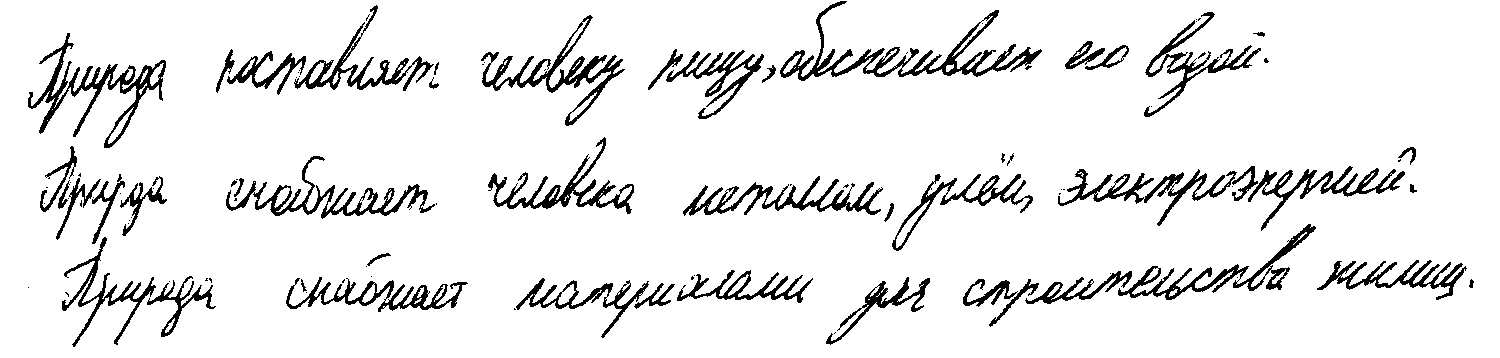 Природа поставляет человеку пищу, обеспечивает его водой.
Природа снабжает человека металлом, углём, электроэнергией.
Природа снабжает материалами для строительства жилищ.